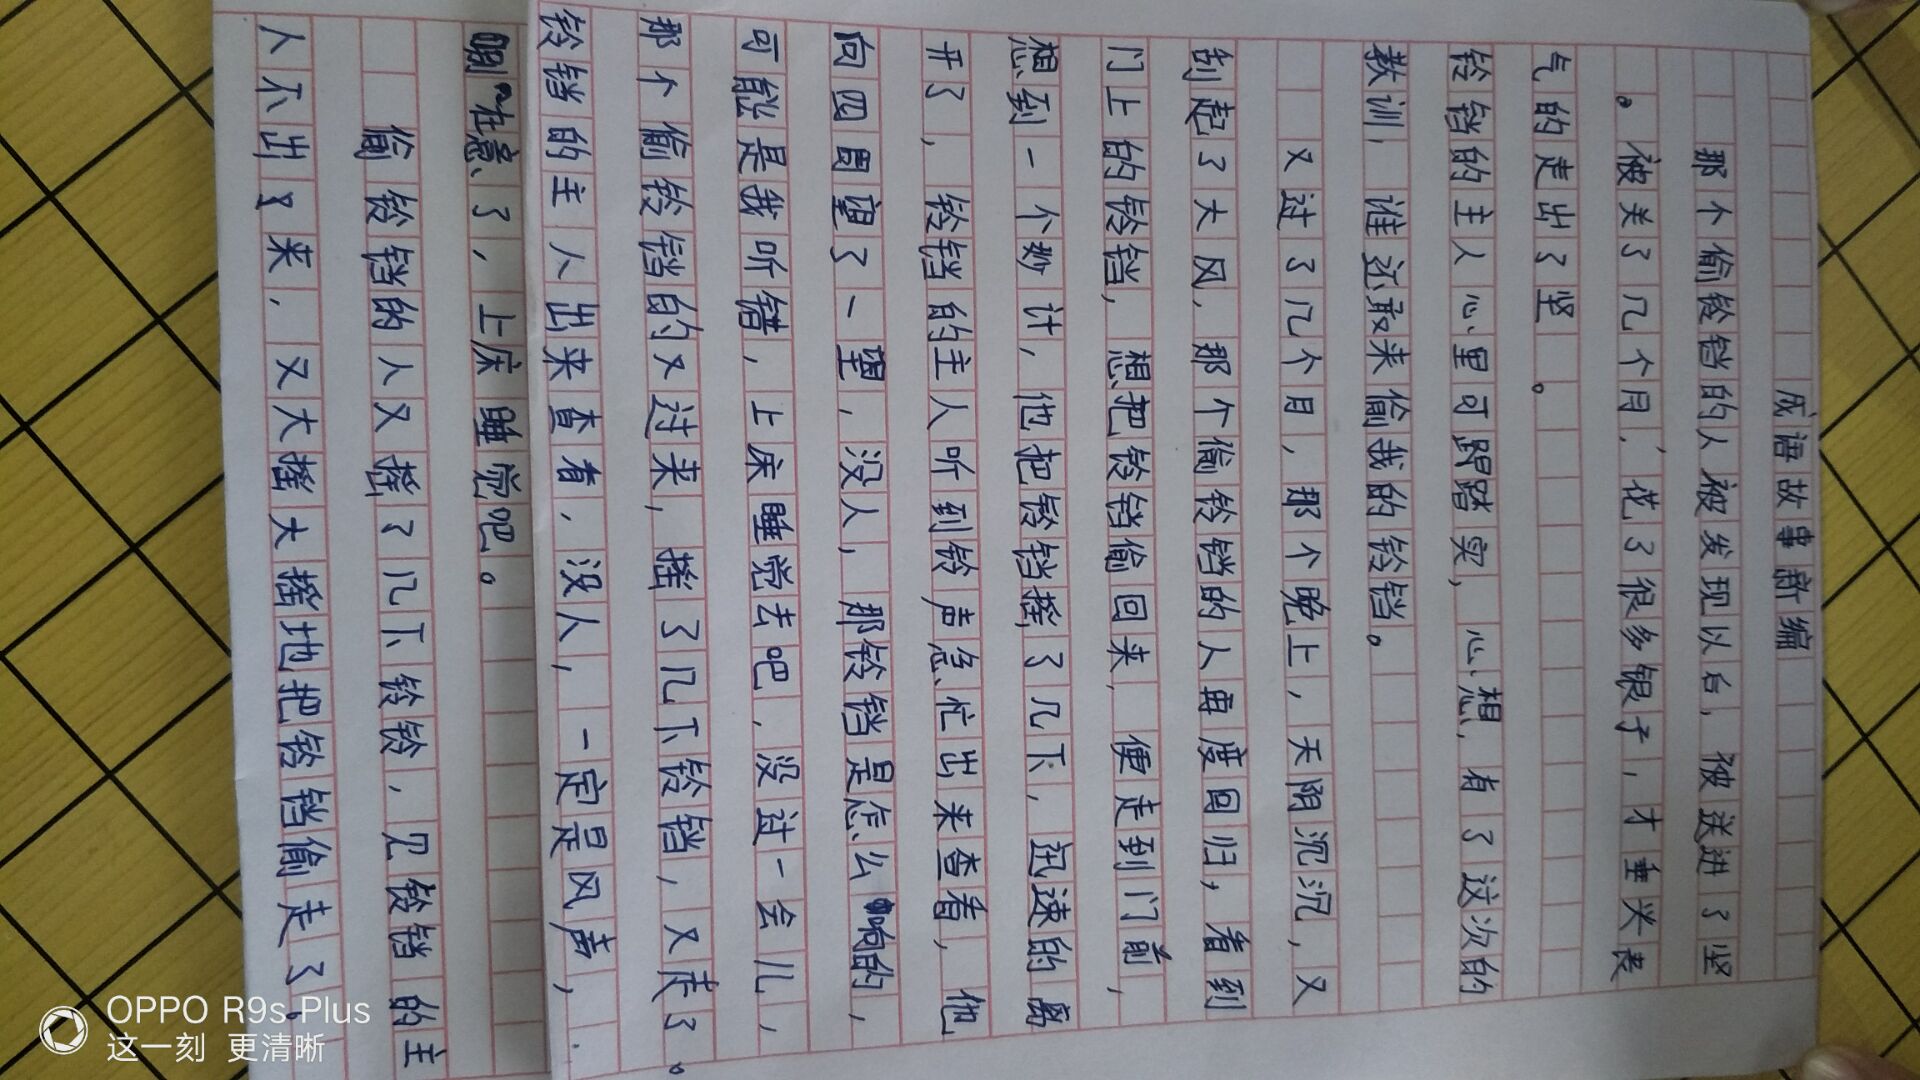 成语故事新编
那个偷铃铛的人被发现以后，被送进了坚
。被关了几个月，花了很多银子，才垂头丧
气的走出了坚。
铃铛的主人心里可踏踏实，心想，有了这次的
教训，谁还敢来偷我的铃铛。
又过了几个月，那个晚上，天阴沉沉，又
刮起了大风，那个偷铃铛的人再度回归，看到
门上的铃铛，想把铃铛偷回来，便走到门前，
想到一个妙计，他把铃铛摇了几下，迅速的离
开了，铃铛的主人听到铃声急忙出来查看，他
向四周望了一望，没人，那铃铛是怎么响的，
可能是我听错，上床睡觉去吧，没过一会儿，
那个偷铃铛的又过来，摇了几下铃铛，又走了。
铃铛的主人出来查看，没人，一定是风声，
别在意了，上床睡觉吧。
偷铃铛的人又摇了几下铃铃，见铃铛的主
人不出来，又大摇大摇地把铃铛偷走了。
OPPO R9s Plus
这一刻 更清晰